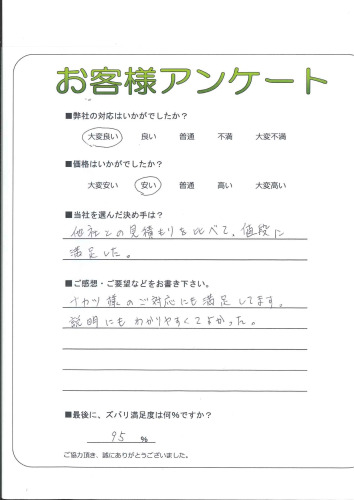 お客様アンケート
■弊社の対応はいかがでしたか?
大変良い 良い 普通 不満 大変不満
■価格はいかがでしたか?
大変安い 安い 普通 高い 大変高い
■当社を選んだ決め手は?
他社との見積もりを比べて、値段に
満足した。
■ご感想・ご要望などをお書き下さい。
ナカツ様のご対応にも満足してます。
説明にもわかりやすくてよかった。
■最後に、ズバリ満足度は何%ですか?
95 %
ご協力頂き、誠にありがとうございました。